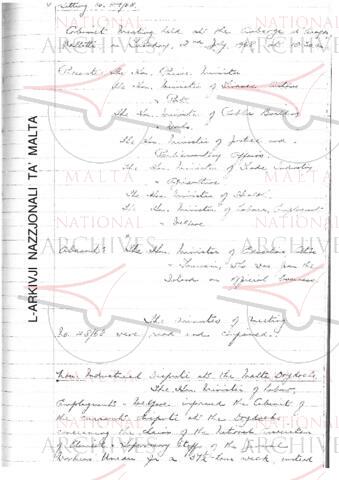 Sitting No.
Cabinet Meeting held at the Auberge d'Aragon,
Valletta - Tuesday, 2nd July, 1968 at
Present: The Hon. Prime Minister
The Hon. Minister of Finance, Customs
& Port.
The Hon. Minister of Public Building
& Works.
The Hon. Minister of Justice and
Parliamentary Affairs.
The Hon. Minister of Trade, Industry
& Agriculture
The Hon. Minister of Health.
The Hon. Minister of Labour, Employment
& Welfare
Absent: The Hon. Minister of
& Tourism, who was from the
Island on official business.
The minutes of meeting
No. 28/68 were read and confirmed.
Industrial Dispute at the Malta Drydocks.
The Hon. Minister of Labour,
Employment & Welfare informed the Cabinet of
the current dispute at the Drydocks
concerning the claim of the National
of Clerical & Supervisory Staffs of the General
Workers Union for a 37½-hour week, instead
L-ARKIVJI NAZZJONALI TA' MALTA
NATIONAL
ARCHIVES
MALTA